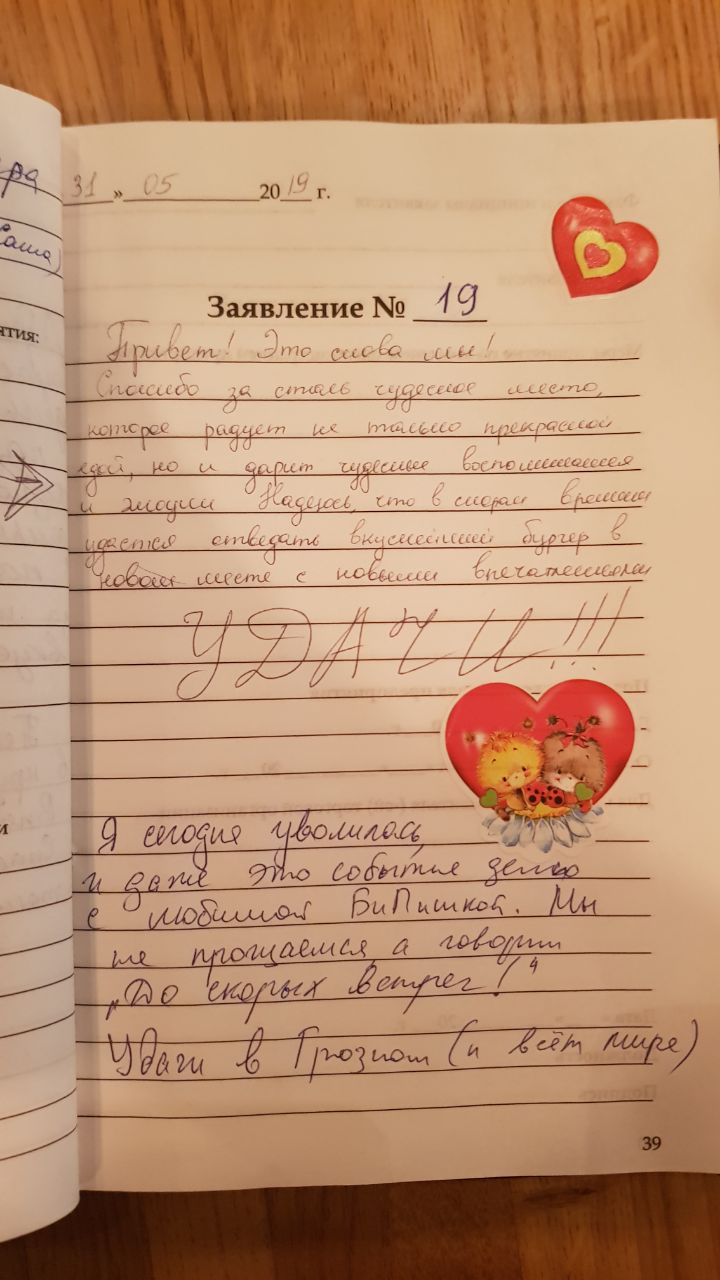 31 » 05 2019 г.
Заявление № 19
Привет! Это снова мы!
Спасибо за столь чудесное место,
которое радует не только прекрасной
едой, но и дарит чудесные воспоминания
и эмоции Надеюсь, что в скором времени
удастся отведать вкуснейший бургер в
новом месте с новыми впечатлениями
УДАЧИ!!!
Я сегодня уволилась,
и даже это событие делю
с любимой БиПишкой. Мы
не прощаемся, а говорим
„До скорых встреч!“
Удачи в Грозном (и всём мире)
39
ра
Саша)
ятия:
и